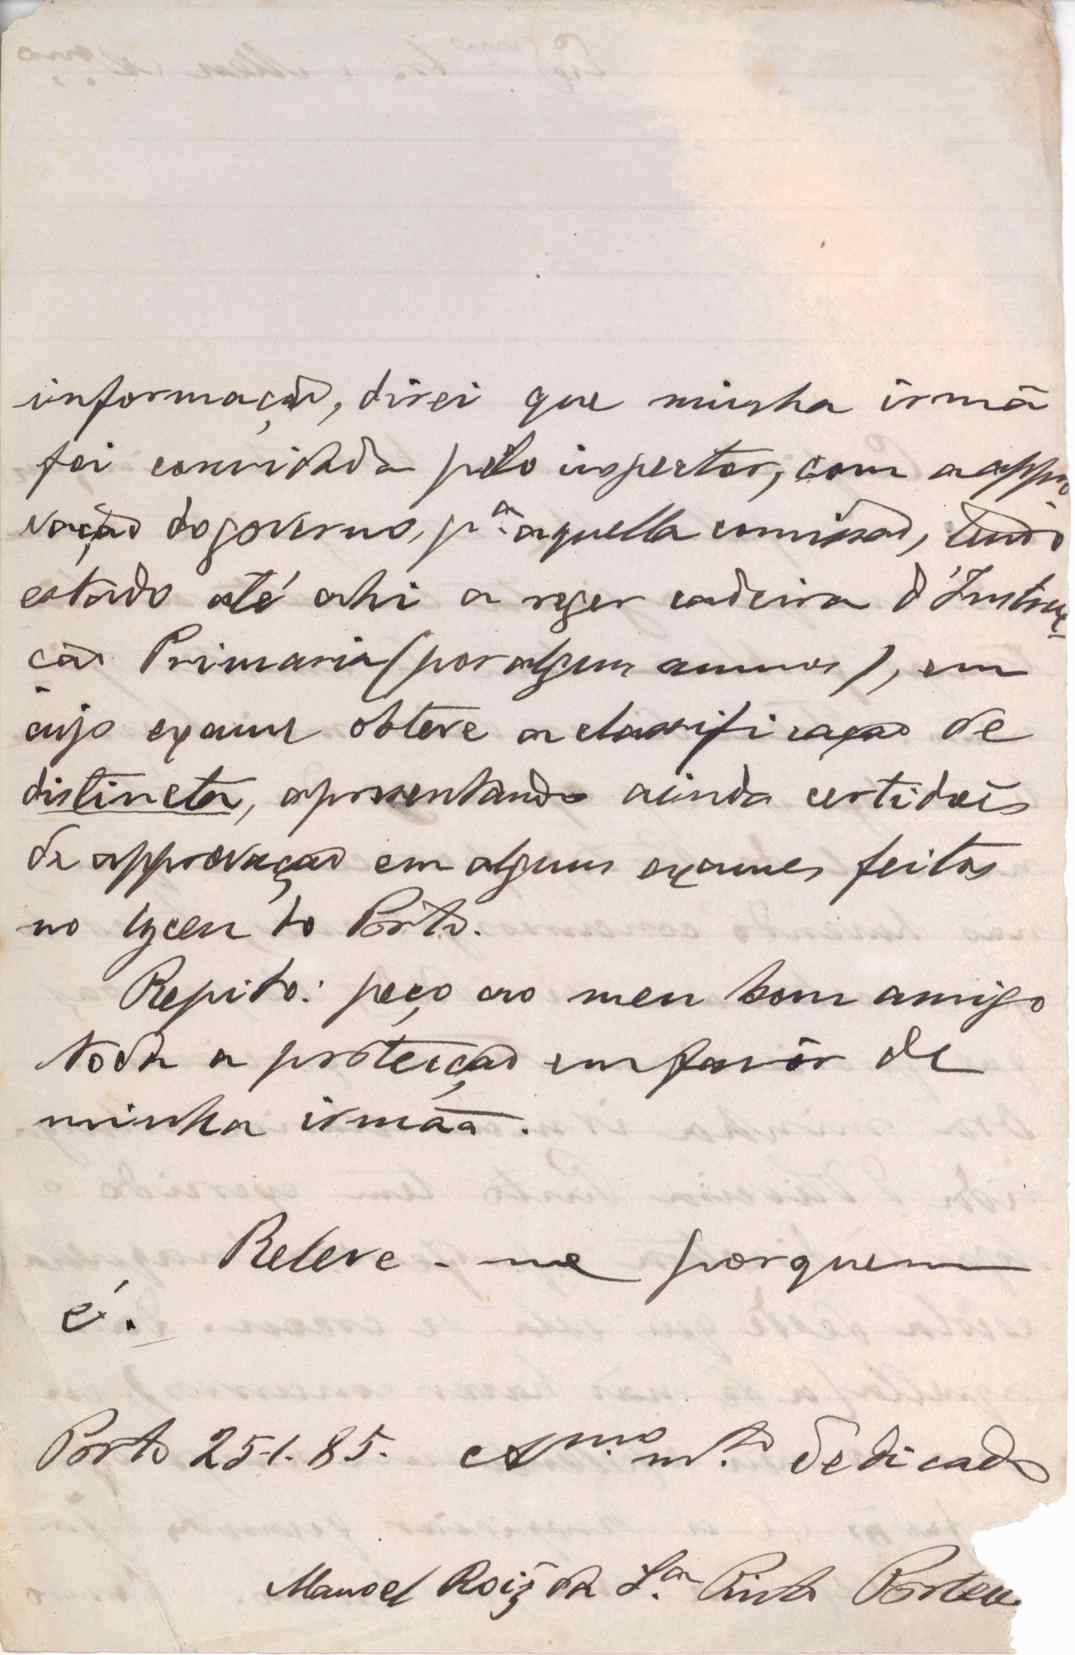 informação, direi que minha irmã
foi convidada pelo inspector, com a appro
vação do governo, p.ª aquella comissão, tendo
estado até ahi a reger cadeira d'Instruc-
ção Primaria (por alguns annos), em
cujo exame obteve a classificação de
distincta, apresentando ainda certidões
de approvação em alguns exames feitos
no lyceu do Porto.
Repito: peço ao meu bom amigo
toda a protecção em favôr de
minha irmãa.
Releve-me por quem
é.
Porto 25-1.85. Am.mo m.to dedicado
Manoel Roiz da S.a Pinto